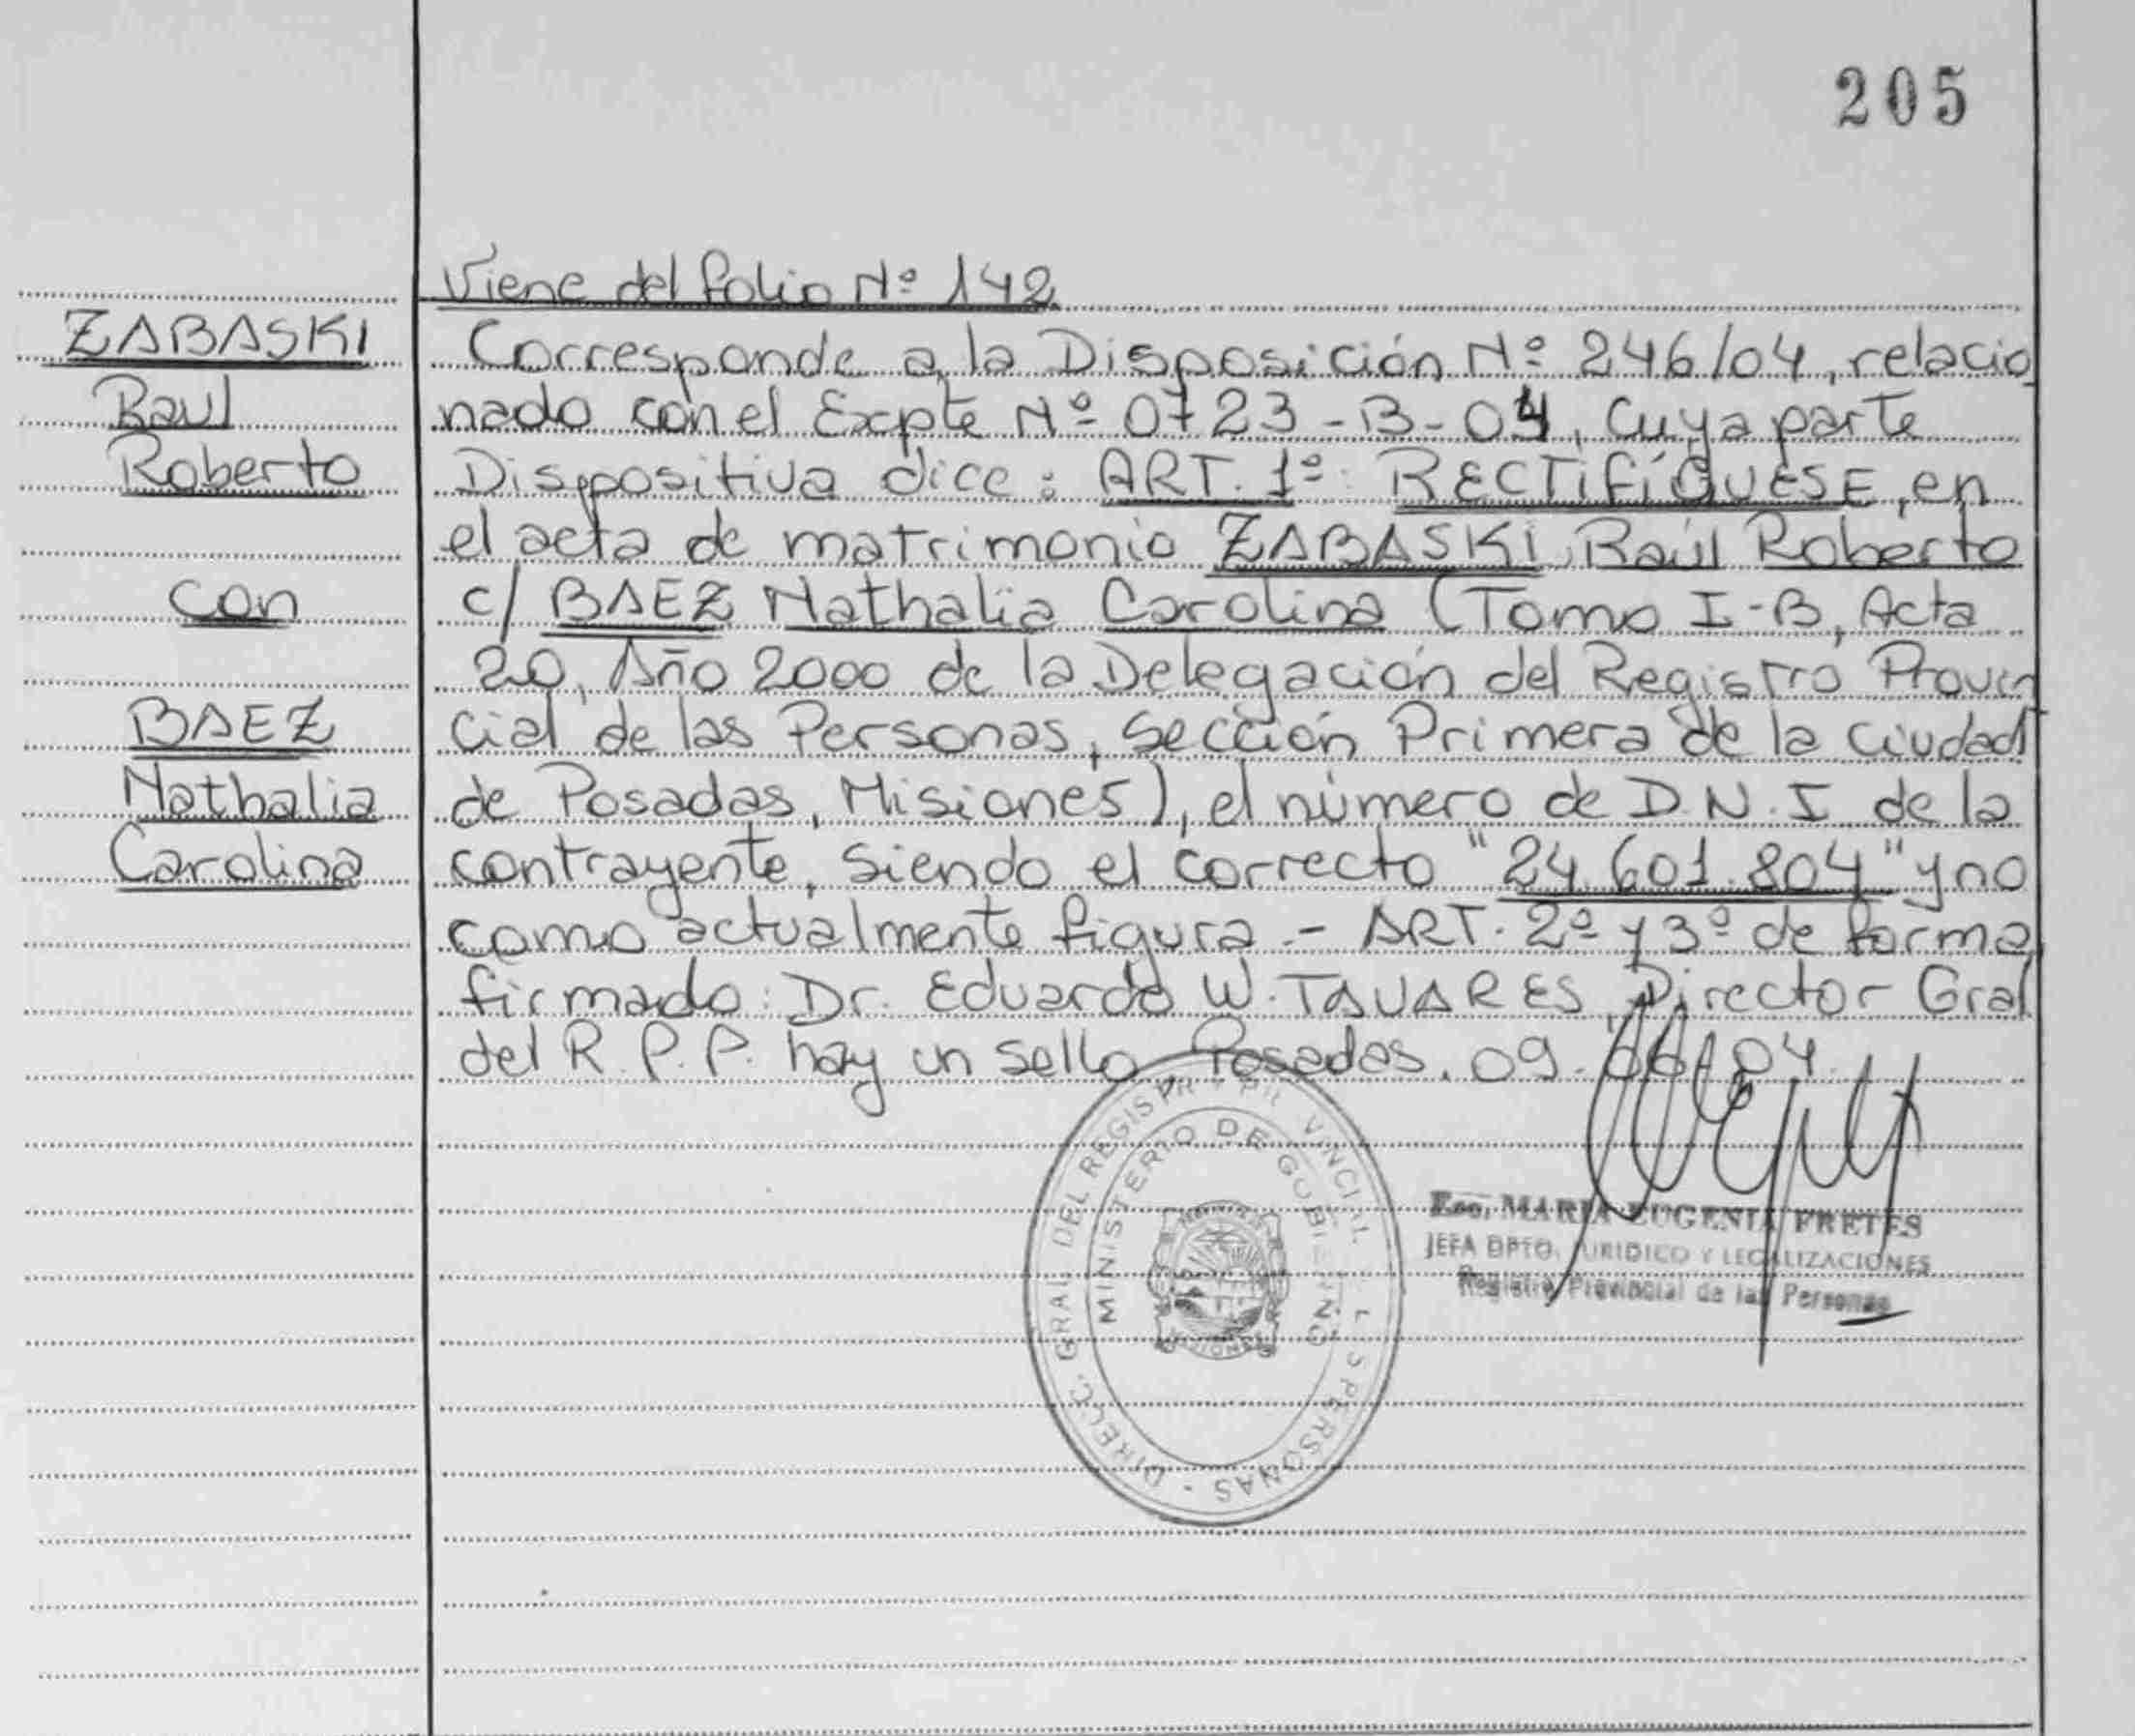 205
Viene del folio Nº 142
ZABASKI
Raul
Roberto
con
BAEZ
Nathalia
Carolina
Corresponde a la Disposición Nº 246/04, relacio
nado con el Expte Nº 0723-B-04, cuya parte
Dispositiva dice: ART. 1º: RECTIFÍQUESE, en
el acta de matrimonio ZABASKI, Raúl Roberto
c/ BAEZ Nathalia Carolina (Tomo I-B, Acta
20, Año 2000 de la Delegación del Registro Provin
cial de las Personas, Sección Primera de la ciudad
de Posadas, Misiones), el número de D.N.I. de la
contrayente, siendo el correcto "24.601.804" y no
como actualmente figura.- ART. 2º y 3º de forma
firmado: Dr. Eduardo W. TAVARES, Director Gral
del R.P.P. hay un sello. Posadas, 09.06.04.
DIRECC. GRAL. DEL REGISTR PERSONAS -
MINISTERIO DE GOBI
MISIONES
Esc. MARIA EUGENIA FRETES
JEFA DPTO. JURIDICO Y LEGALIZACIONES
Registro Provincial de las Personas